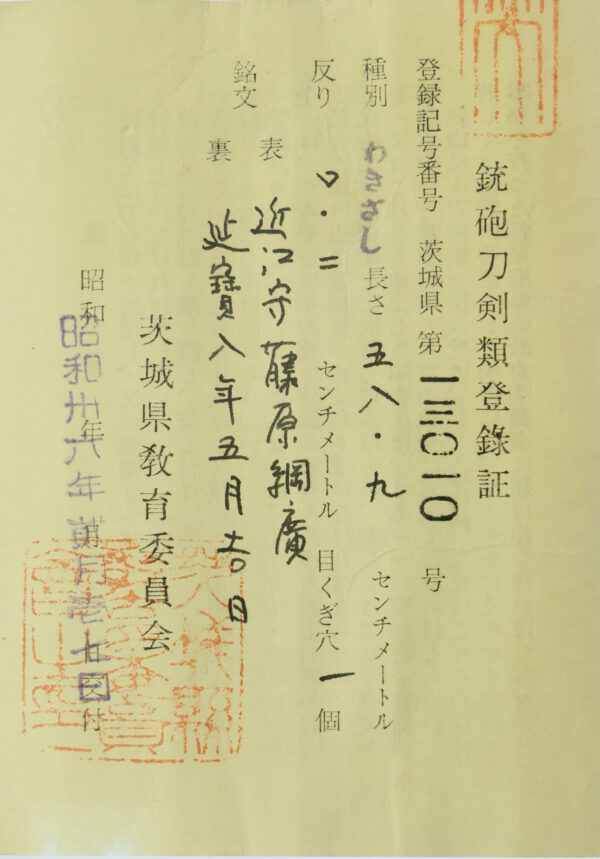 銃砲刀剣類登錄証
登録記号番号 茨城県 第 一三〇一〇 号
種別 わきざし 長さ 五八・九 センチメートル
反り 〇・二 センチメートル 目くぎ穴 一 個
銘文 表 近江守藤原綱廣
裏 延寶八年五月吉日
茨城県教育委員会
昭和 年 月 日交付
昭和卅六年貮月壱七日